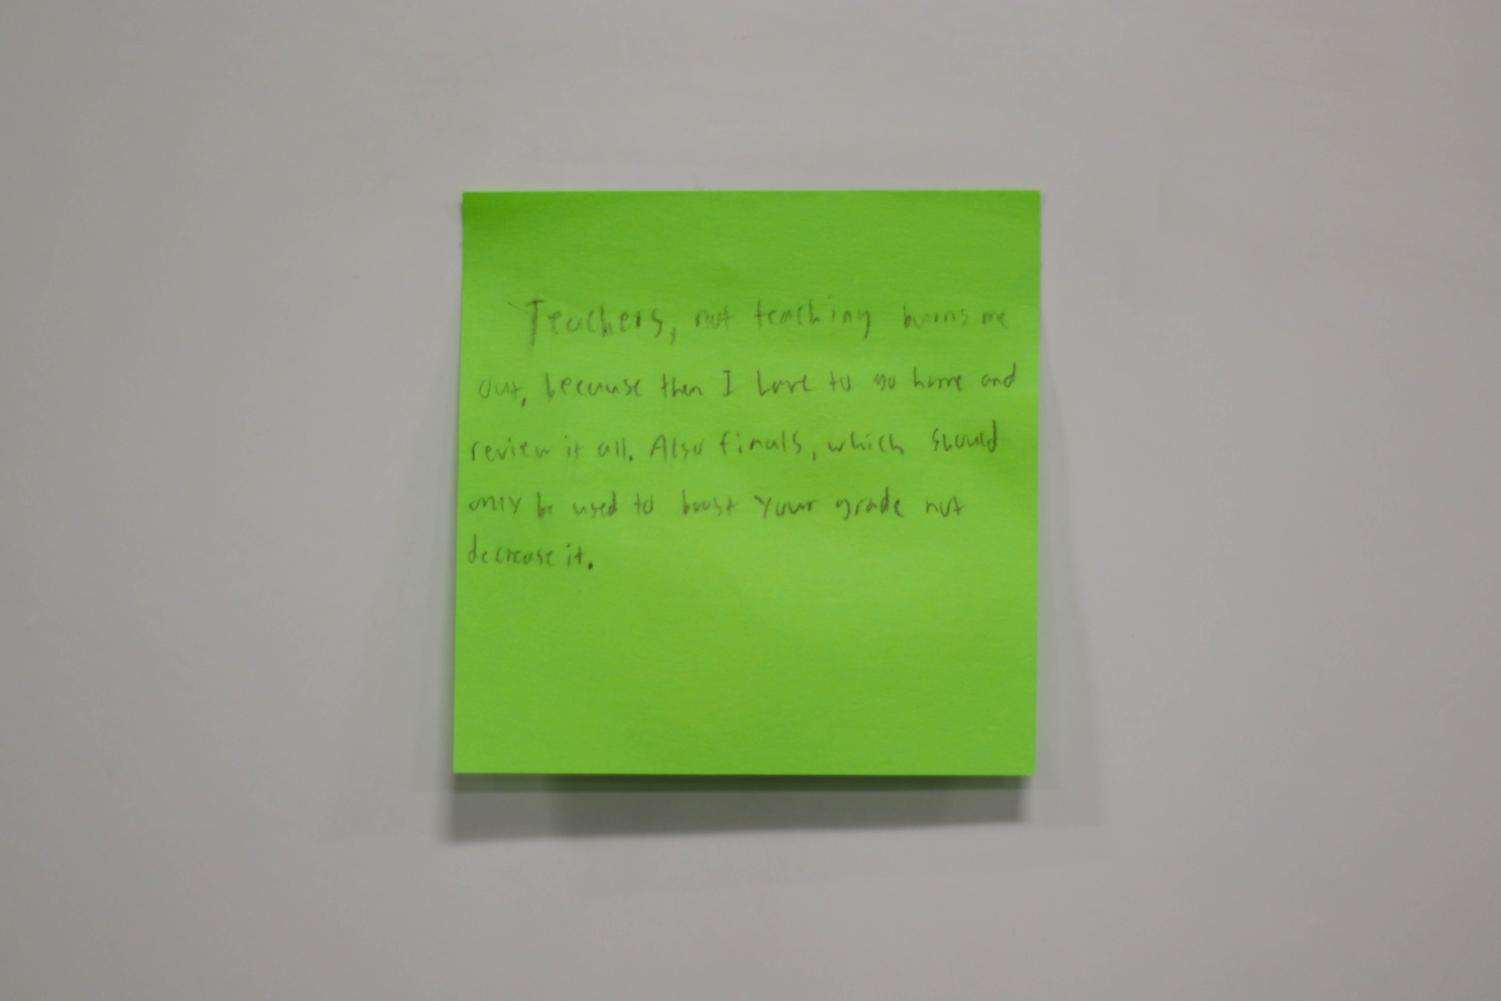 Teachers, not teaching burns me
out, because then I have to go home and
review it all. Also finals, which should
only be used to boost your grade not
decrease it.